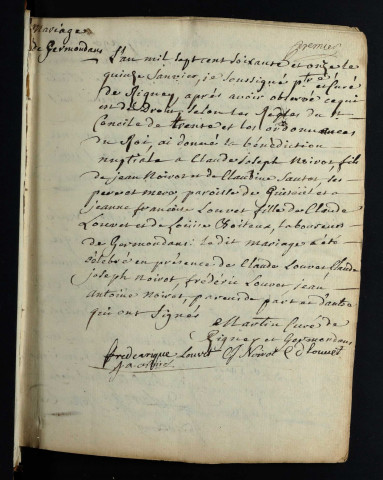 Mariage
de Germondans
premier
L'an mil sept cent soixante et onze le
quinze Janvier, je soussigné ptre et Curé
de Rigney, aprés avoir observé ce qui
est de Droit, selon les Régles du St
Concile de trente et les ordonnances
du Roi, ai donné la bénédiction
nuptiale a Claude Joseph Noirot fils
de jean Noirot et de Claudine
ses pere et mere, paroisse de et
jeanne françoise Louvet fille de Claude
Louvet et de Louise Boiteux, laboureurs
de Germondans: ledit mariage a été
célébré en présence de Claude Louvet, Claude
joseph Noirot, frédéric Louvet, jean
antoine Noirot, parens de part et d'autre
qui ont signés
Martin Curé de
Rigney et Germondans
frederique Louvet CJ Noirot Cl Louvet